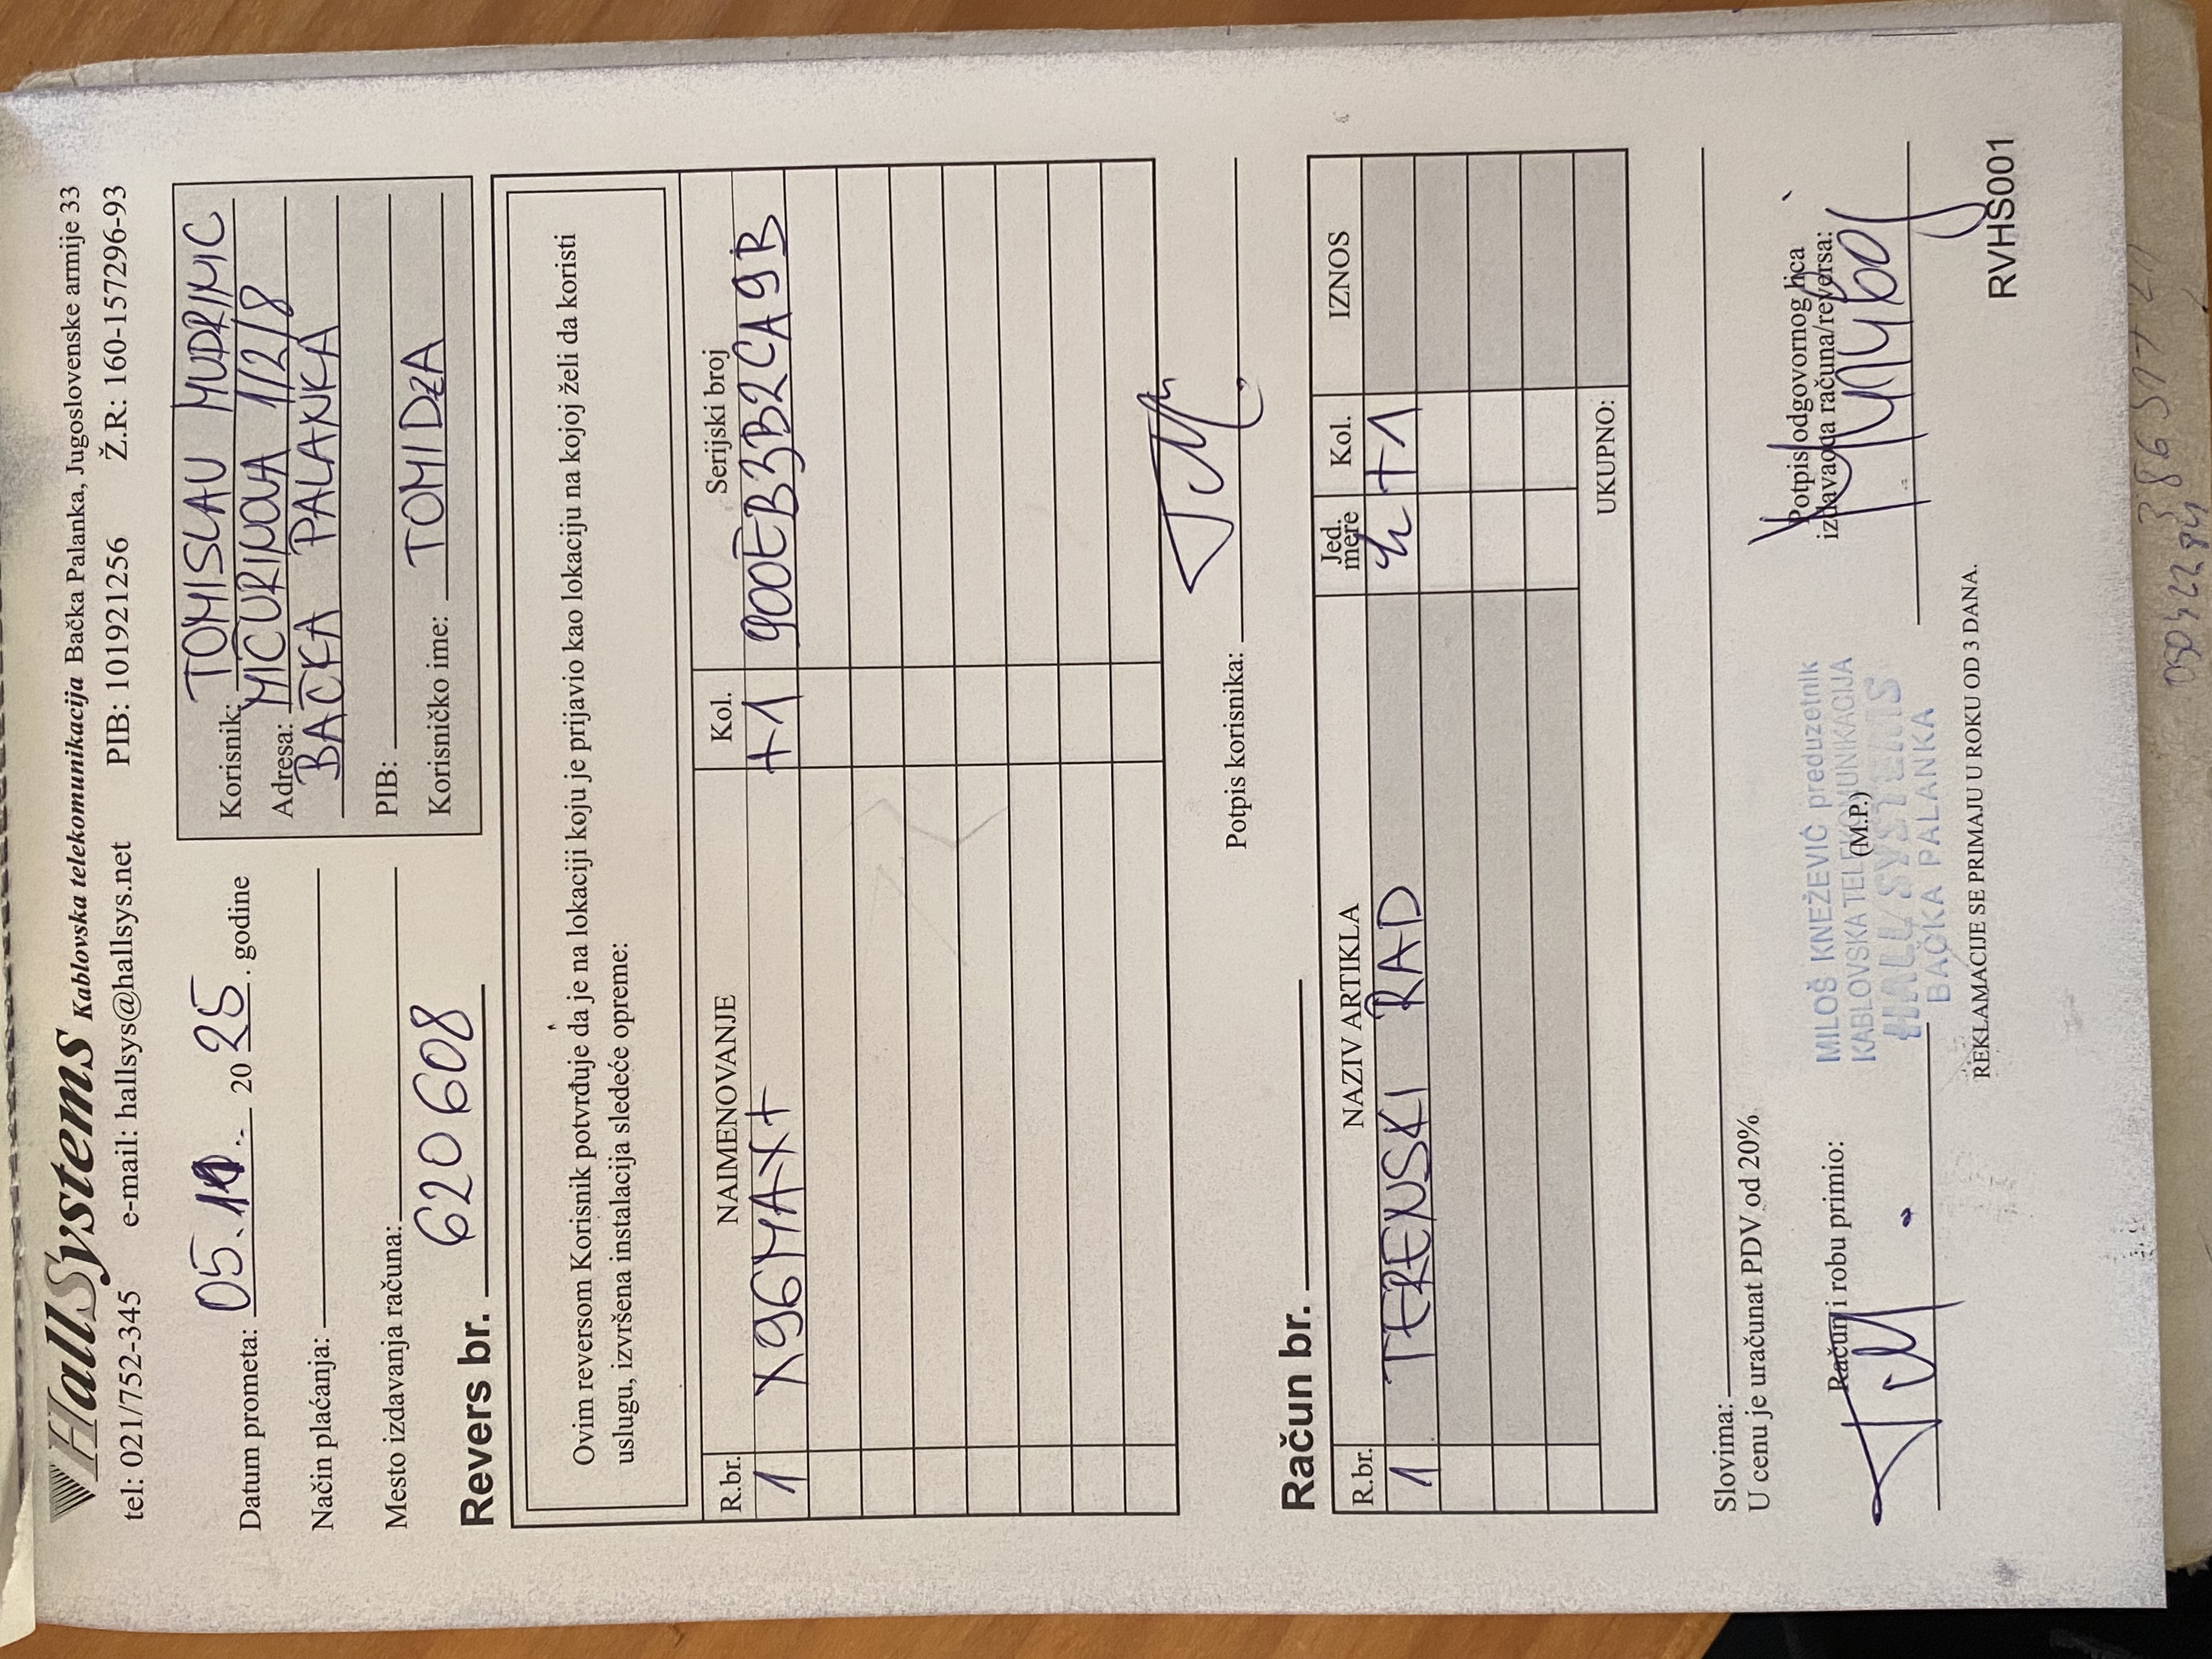 HallSystems Kablovska telekomunikacija Bačka Palanka, Jugoslovenske armije 33
tel: 021/752-345 e-mail: hallsys@hallsys.net PIB: 101921256 Ž.R: 160-157296-93
Datum prometa: 05. 20 25. godine
Način plaćanja:
Mesto izdavanja računa:
620608
Korisnik: TOMISLAV MUDRINIC
Adresa: MIČURINOVA 1/2/8
BAČKA PALANKA
PIB:
Korisničko ime: TOMIDŽA
Revers br.
Ovim reversom Korisnik potvrđuje da je na lokaciji koju je prijavio kao lokaciju na kojoj želi da koristi
uslugu, izvršena instalacija sledeće opreme:
R.br. NAIMENOVANJE Kol. Serijski broj
1 X96MAX+ +1 900EB3B2CA9B
Potpis korisnika:
Račun br.
R.br. NAZIV ARTIKLA Jed. mere Kol. IZNOS
1 TERENSKI RAD h +1
UKUPNO:
Slovima:
U cenu je uračunat PDV od 20%
Račun i robu primio:
MILOŠ KNEŽEVIĆ preduzetnik
KABLOVSKA TELEKOMUNIKACIJA
(M.P.)
HALL SYSTEMS
BAČKA PALANKA
Potpis odgovornog lica
izdavaoda računa/reversa:
REKLAMACIJE SE PRIMAJU U ROKU OD 3 DANA.
RVHS001